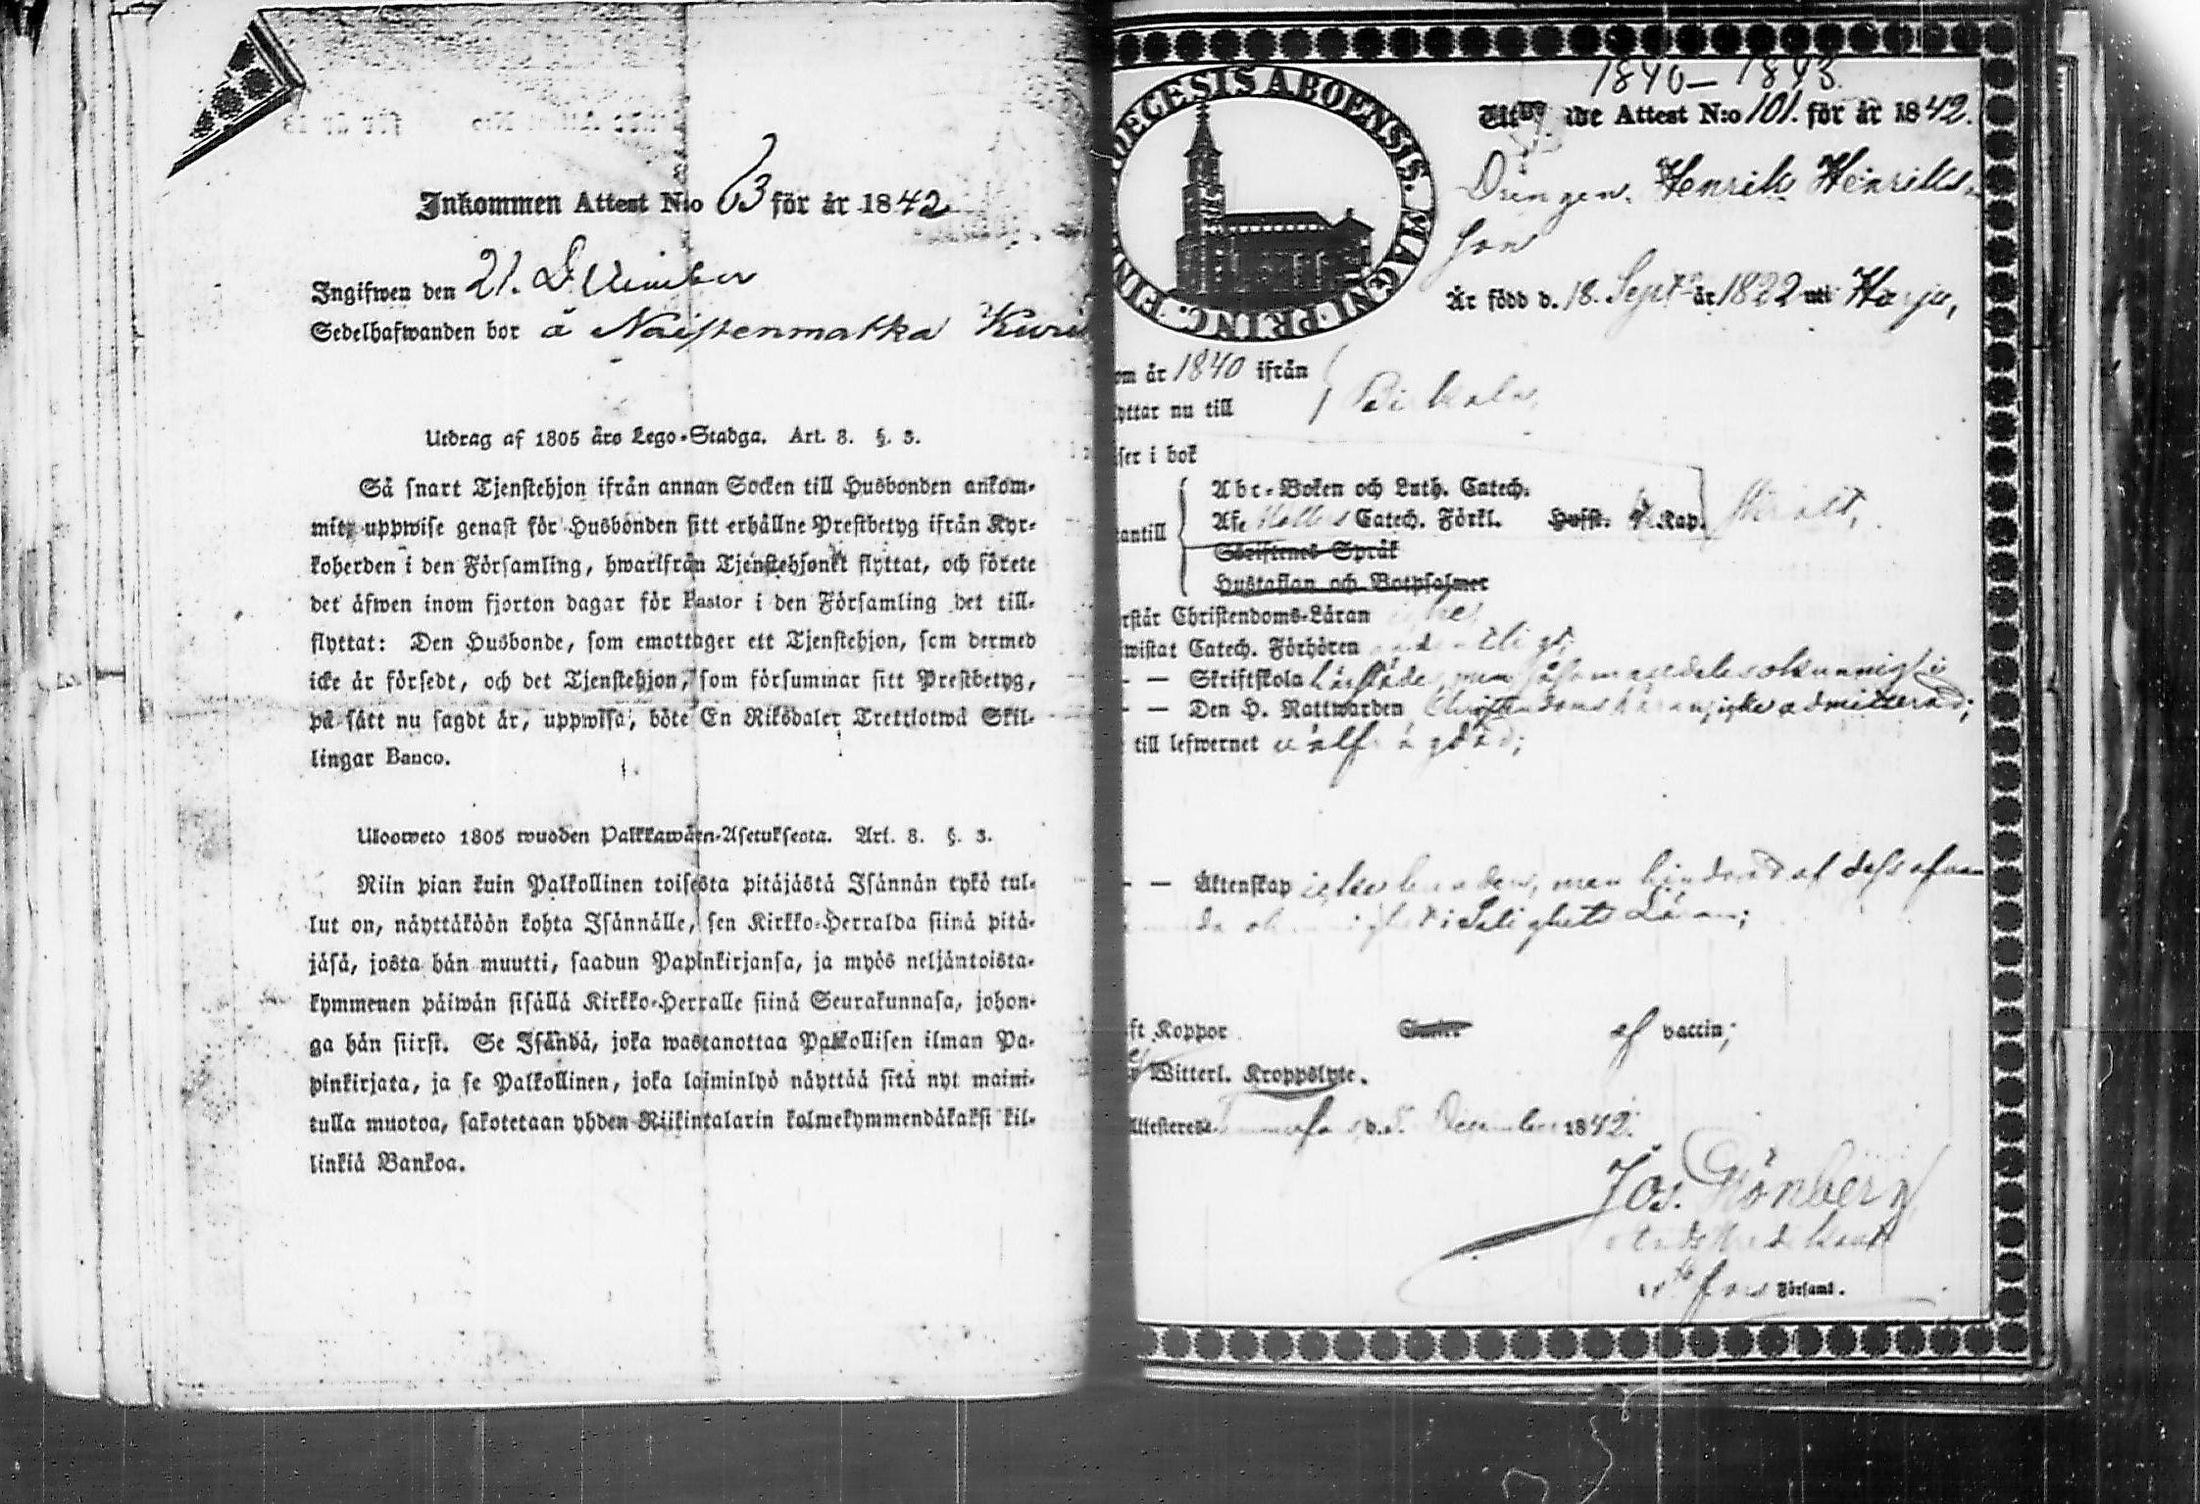 Inkommen Attest N:o 63 för år 1842
Ingifwen den 21. December
Sedelhafwanden bor å Naistenmatka
Utdrag af 1805 års Lego-Stadga. Art. 8. §. 3.
Så snart Tjenstehjon ifrån annan Socken till Husbonden ankom-
mit, uppwise genast för Husbonden sitt erhållne Prestbetyg ifrån Kyr-
koherden i den Församling, hwarifrån Tjenstehjonet flyttat, och förete
det äfwen inom fjorton dagar för Pastor i den Församling det till-
flyttat: Den Husbonde, som emottager ett Tjenstehjon, som dermed
icke är försedt, och det Tjenstehjon, som försummar sitt Prestbetyg,
på sätt nu sagdt är, uppwisa, böte En Riksdaler Trettiotwå Skil-
lingar Banco.
Ulosweto 1805 wuoden Palkkawäen-Asetuksesta. Art. 8. §. 3.
Niin pian kuin Palkollinen toisesta pitäjästä Isännän tykö tul-
lut on, näyttäköön kohta Isännälle, sen Kirkko-Herralda siinä pitä-
jäsä, josta hän muutti, saadun Papinkirjansa, ja myös neljäntoista-
kymmenen päiwän sisällä Kirkko-Herralle siinä Seurakunnasa, johon-
ga hän siirsi. Se Isändä, joka wastanottaa Palkollisen ilman Pa-
pinkirjata, ja se Palkollinen, joka laiminlyö näyttää sitä nyt maini-
tulla muotoa, sakotetaan yhden Riikintalarin kolmekymmendäkaksi kil-
linkiä Bankoa.
1840–1843
DIOECESIS ABOENSIS. MAGNI PRINC. FIN
Attest N:o 101. för år 1842.
Drängen Henrik Henriks-
son
Är född d. 18. Sept år 1822 uti Harju,
om år 1840 ifrån
yttar nu till
Pirkala
ser i bok
Abc-Boken och Luth. Catech.
antill Afe Catech. Förkl. Husst. Kap.
Skriftenes Språk
Hustaflan och Botpsalmer
rstår Christendoms-Läran
wistat Catech. Förhören
— — Skriftskola men
— — Den H. Nattwarden Christendoms Läran, icke admitterad;
till lefwernet
— — Äktenskap men hindrad af dess
i Salighets Läran;
ft Koppor af vaccin;
Witterl. Kroppslyte.
Attesterar d. 5. December 1842.
Jos. Grönberg
fors Församl.